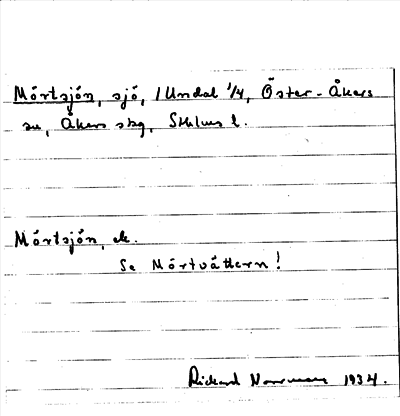 Mörtsjön, sjö, 1 Undal 1/4, Öster-Åkers
sn, Åkers skg, Sthlms l.
Mörtsjön, ek.
Se Mörtvättern!
Rickard Norrman 1934.